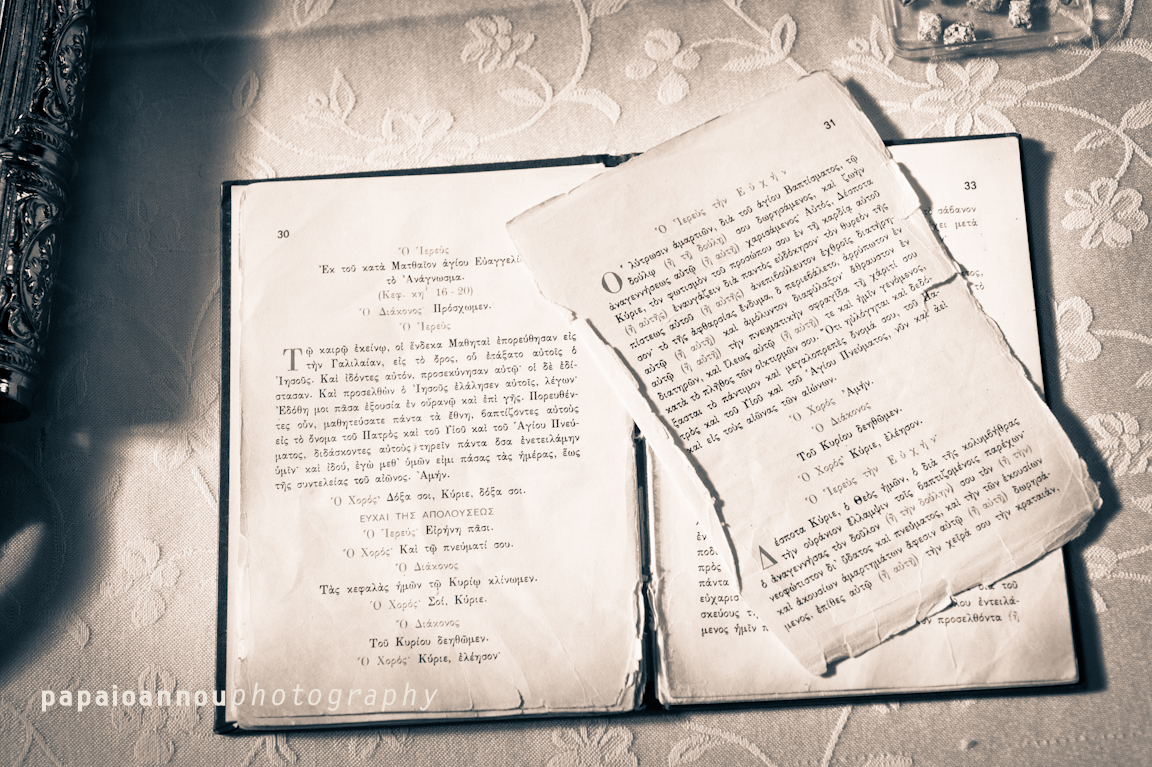 30
Ὁ Ἱερεύς
Ἐκ τοῦ κατὰ Ματθαῖον ἁγίου Εὐαγγελί
τὸ Ἀνάγνωσμα.
(Κεφ. κη΄ 16 - 20)
Ὁ Διάκονος· Πρόσχωμεν.
Ὁ Ἱερεύς
Τῷ καιρῷ ἐκείνῳ, οἱ ἕνδεκα Μαθηταὶ ἐπορεύθησαν εἰς
τὴν Γαλιλαίαν, εἰς τὸ ὄρος, οὗ ἐτάξατο αὐτοῖς ὁ
Ἰησοῦς. Καὶ ἰδόντες αὐτόν, προσεκύνησαν αὐτῷ· οἱ δὲ ἐδί-
στασαν. Καὶ προσελθὼν ὁ Ἰησοῦς ἐλάλησεν αὐτοῖς, λέγων·
Ἐδόθη μοι πᾶσα ἐξουσία ἐν οὐρανῷ καὶ ἐπὶ γῆς. Πορευθέν-
τες οὖν, μαθητεύσατε πάντα τὰ ἔθνη, βαπτίζοντες αὐτοὺς
εἰς τὸ ὄνομα τοῦ Πατρὸς καὶ τοῦ Υἱοῦ καὶ τοῦ Ἁγίου Πνεύ-
ματος, διδάσκοντες αὐτοὺς τηρεῖν πάντα ὅσα ἐνετειλάμην
ὑμῖν· καὶ ἰδού, ἐγὼ μεθ᾽ ὑμῶν εἰμι πάσας τὰς ἡμέρας, ἕως
τῆς συντελείας τοῦ αἰῶνος. Ἀμήν.
Ὁ Χορός· Δόξα σοι, Κύριε, δόξα σοι.
ΕΥΧΑΙ ΤΗΣ ΑΠΟΛΟΥΣΕΩΣ
Ὁ Ἱερεύς· Εἰρήνη πᾶσι.
Ὁ Χορός· Καὶ τῷ πνεύματί σου.
Ὁ Διάκονος
Τὰς κεφαλὰς ἡμῶν τῷ Κυρίῳ κλίνωμεν.
Ὁ Χορός· Σοί, Κύριε.
Ὁ Διάκονος
Τοῦ Κυρίου δεηθῶμεν.
Ὁ Χορός· Κύριε, ἐλέησον·
31
Ὁ Ἱερεὺς τὴν Εὐχήν
Ὁ λύτρωσιν ἁμαρτιῶν, διὰ τοῦ ἁγίου Βαπτίσματος, τῷ
δούλῳ (ἢ τῇ δούλῃ) σου δωρησάμενος, καὶ ζωὴν
ἀναγεννήσεως αὐτῷ (ἢ αὐτῇ) χαρισάμενος· Αὐτός, Δέσποτα
Κύριε, τὸν φωτισμὸν τοῦ προσώπου σου ἐν τῇ καρδίᾳ αὐτοῦ
(ἢ αὐτῆς) ἐναυγάζειν διὰ παντὸς εὐδόκησον· τὸν θυρεὸν τῆς
πίστεως αὐτοῦ (ἢ αὐτῆς) ἀνεπιβούλευτον ἐχθροῖς διατήρη-
σον· τὸ τῆς ἀφθαρσίας ἔνδυμα, ὃ περιεβάλετο, ἀρρύπωτον ἐν
αὐτῷ (ἢ αὐτῇ) καὶ ἀμόλυντον διαφύλαξον· ἄθραυστον ἐν
αὐτῷ (ἢ αὐτῇ) τὴν πνευματικὴν σφραγῖδα τῇ χάριτί σου
διατηρῶν, καὶ ἵλεως αὐτῷ (ἢ αὐτῇ) τε καὶ ἡμῖν γενόμενος,
κατὰ τὸ πλῆθος τῶν οἰκτιρμῶν σου. Ὅτι ηὐλόγηται καὶ δεδό-
ξασται τὸ πάντιμον καὶ μεγαλοπρεπὲς ὄνομά σου, τοῦ Πα-
τρὸς καὶ τοῦ Υἱοῦ καὶ τοῦ Ἁγίου Πνεύματος, νῦν καὶ ἀεὶ
καὶ εἰς τοὺς αἰῶνας τῶν αἰώνων.
Ὁ Χορός· Ἀμήν.
Ὁ Διάκονος
Τοῦ Κυρίου δεηθῶμεν.
Ὁ Χορός· Κύριε, ἐλέησον.
Ὁ Ἱερεὺς τὴν Εὐχήν
Δέσποτα Κύριε, ὁ Θεὸς ἡμῶν, ὁ διὰ τῆς κολυμβήθρας
τὴν οὐράνιον ἔλλαμψιν τοῖς βαπτιζομένοις παρέχων·
ὁ ἀναγεννήσας τὸν δοῦλον (ἢ τὴν δούλην) σου τὸν (ἢ τὴν)
νεοφώτιστον δι᾽ ὕδατος καὶ πνεύματος, καὶ τὴν τῶν ἑκουσίων
καὶ ἀκουσίων ἁμαρτημάτων ἄφεσιν αὐτῷ (ἢ αὐτῇ) δωρησά-
μενος, ἐπίθες αὐτῷ (ἢ αὐτῇ) τὴν χεῖρά σου τὴν κραταιάν,
33
σάβανον
ει μετὰ
τὸ
ἐν
ποδ
πρὸς
πάντα
εὐχαρισ
σκεύους τ
μενος ἡμῖν
διὰ τοῦ
λου ἐντειλά-
προσελθόντα (ἢ
papaioannouphotography